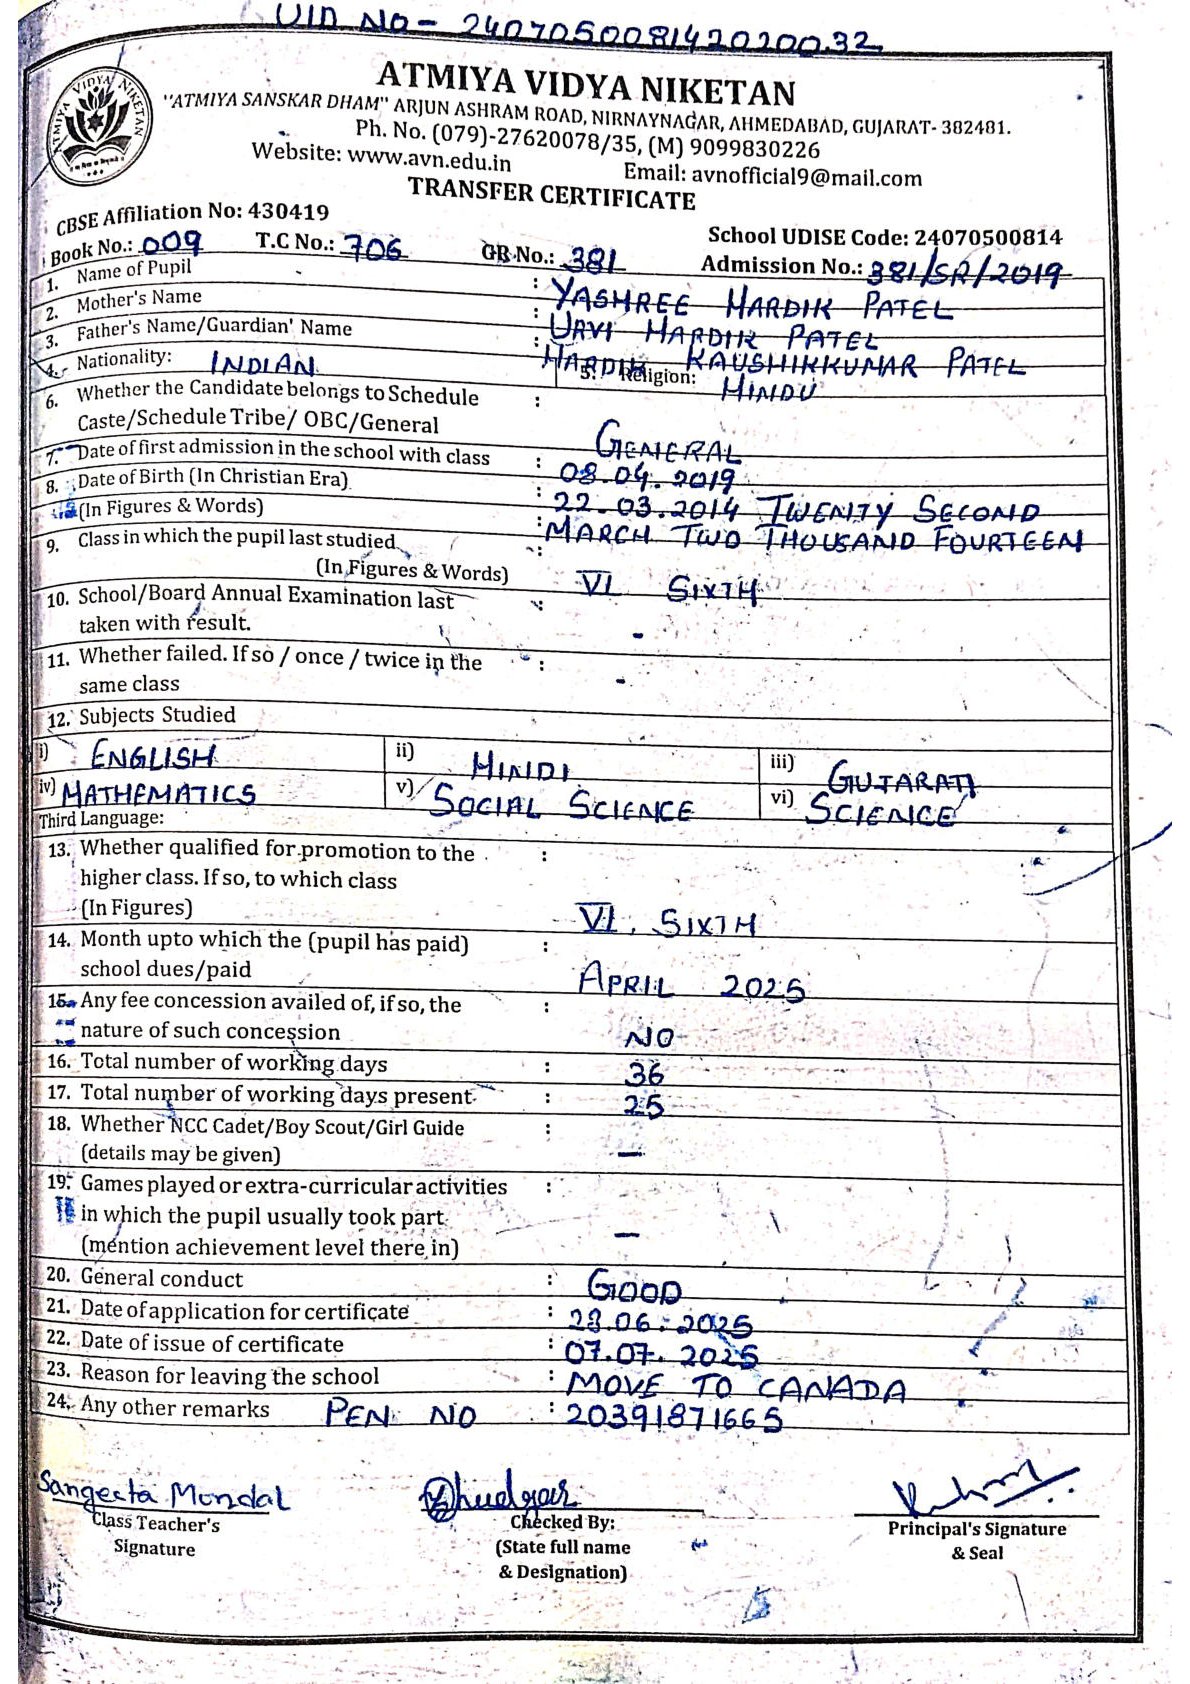 UID No - 240705008142020032
ATMIYA VIDYA NIKETAN
"ATMIYA SANSKAR DHAM" ARJUN ASHRAM ROAD, NIRNAYNAGAR, AHMEDABAD, GUJARAT- 382481.
Ph. No. (079)-27620078/35, (M) 9099830226
Website: www.avn.edu.in Email: avnofficial9@mail.com
TRANSFER CERTIFICATE
CBSE Affiliation No: 430419 School UDISE Code: 24070500814
Book No.: 009 T.C No.: 706 GR No.: 381 Admission No.: 381/SR/2019
1. Name of Pupil : YASHREE HARDIK PATEL
2. Mother's Name : URVI HARDIK PATEL
3. Father's Name/Guardian' Name : HARDIK KAUSHIKKUMAR PATEL
4. Nationality: INDIAN 5. Religion: HINDU
6. Whether the Candidate belongs to Schedule :
Caste/Schedule Tribe/ OBC/General GENERAL
7. Date of first admission in the school with class : 08.04.2019
8. Date of Birth (In Christian Era) : 22.03.2014 TWENTY SECOND
(In Figures & Words) : MARCH TWO THOUSAND FOURTEEN
9. Class in which the pupil last studied :
(In Figures & Words) VI SIXTH
10. School/Board Annual Examination last :
taken with result. -
11. Whether failed. If so / once / twice in the :
same class -
12. Subjects Studied
i) ENGLISH ii) HINDI iii) GUJARATI
iv) MATHEMATICS v) SOCIAL SCIENCE vi) SCIENCE
Third Language:
13. Whether qualified for promotion to the :
higher class. If so, to which class
(In Figures) VI, SIXTH
14. Month upto which the (pupil has paid) :
school dues/paid APRIL 2025
15. Any fee concession availed of, if so, the :
nature of such concession NO
16. Total number of working days : 36
17. Total number of working days present : 25
18. Whether NCC Cadet/Boy Scout/Girl Guide :
(details may be given) —
19. Games played or extra-curricular activities :
in which the pupil usually took part
(mention achievement level there in) —
20. General conduct : GOOD
21. Date of application for certificate : 23.06.2025
22. Date of issue of certificate : 07.07.2025
23. Reason for leaving the school : MOVE TO CANADA
24. Any other remarks PEN NO : 20391871665
Sangeeta Mondal
Class Teacher's Checked By: Principal's Signature
Signature (State full name & Seal
& Designation)